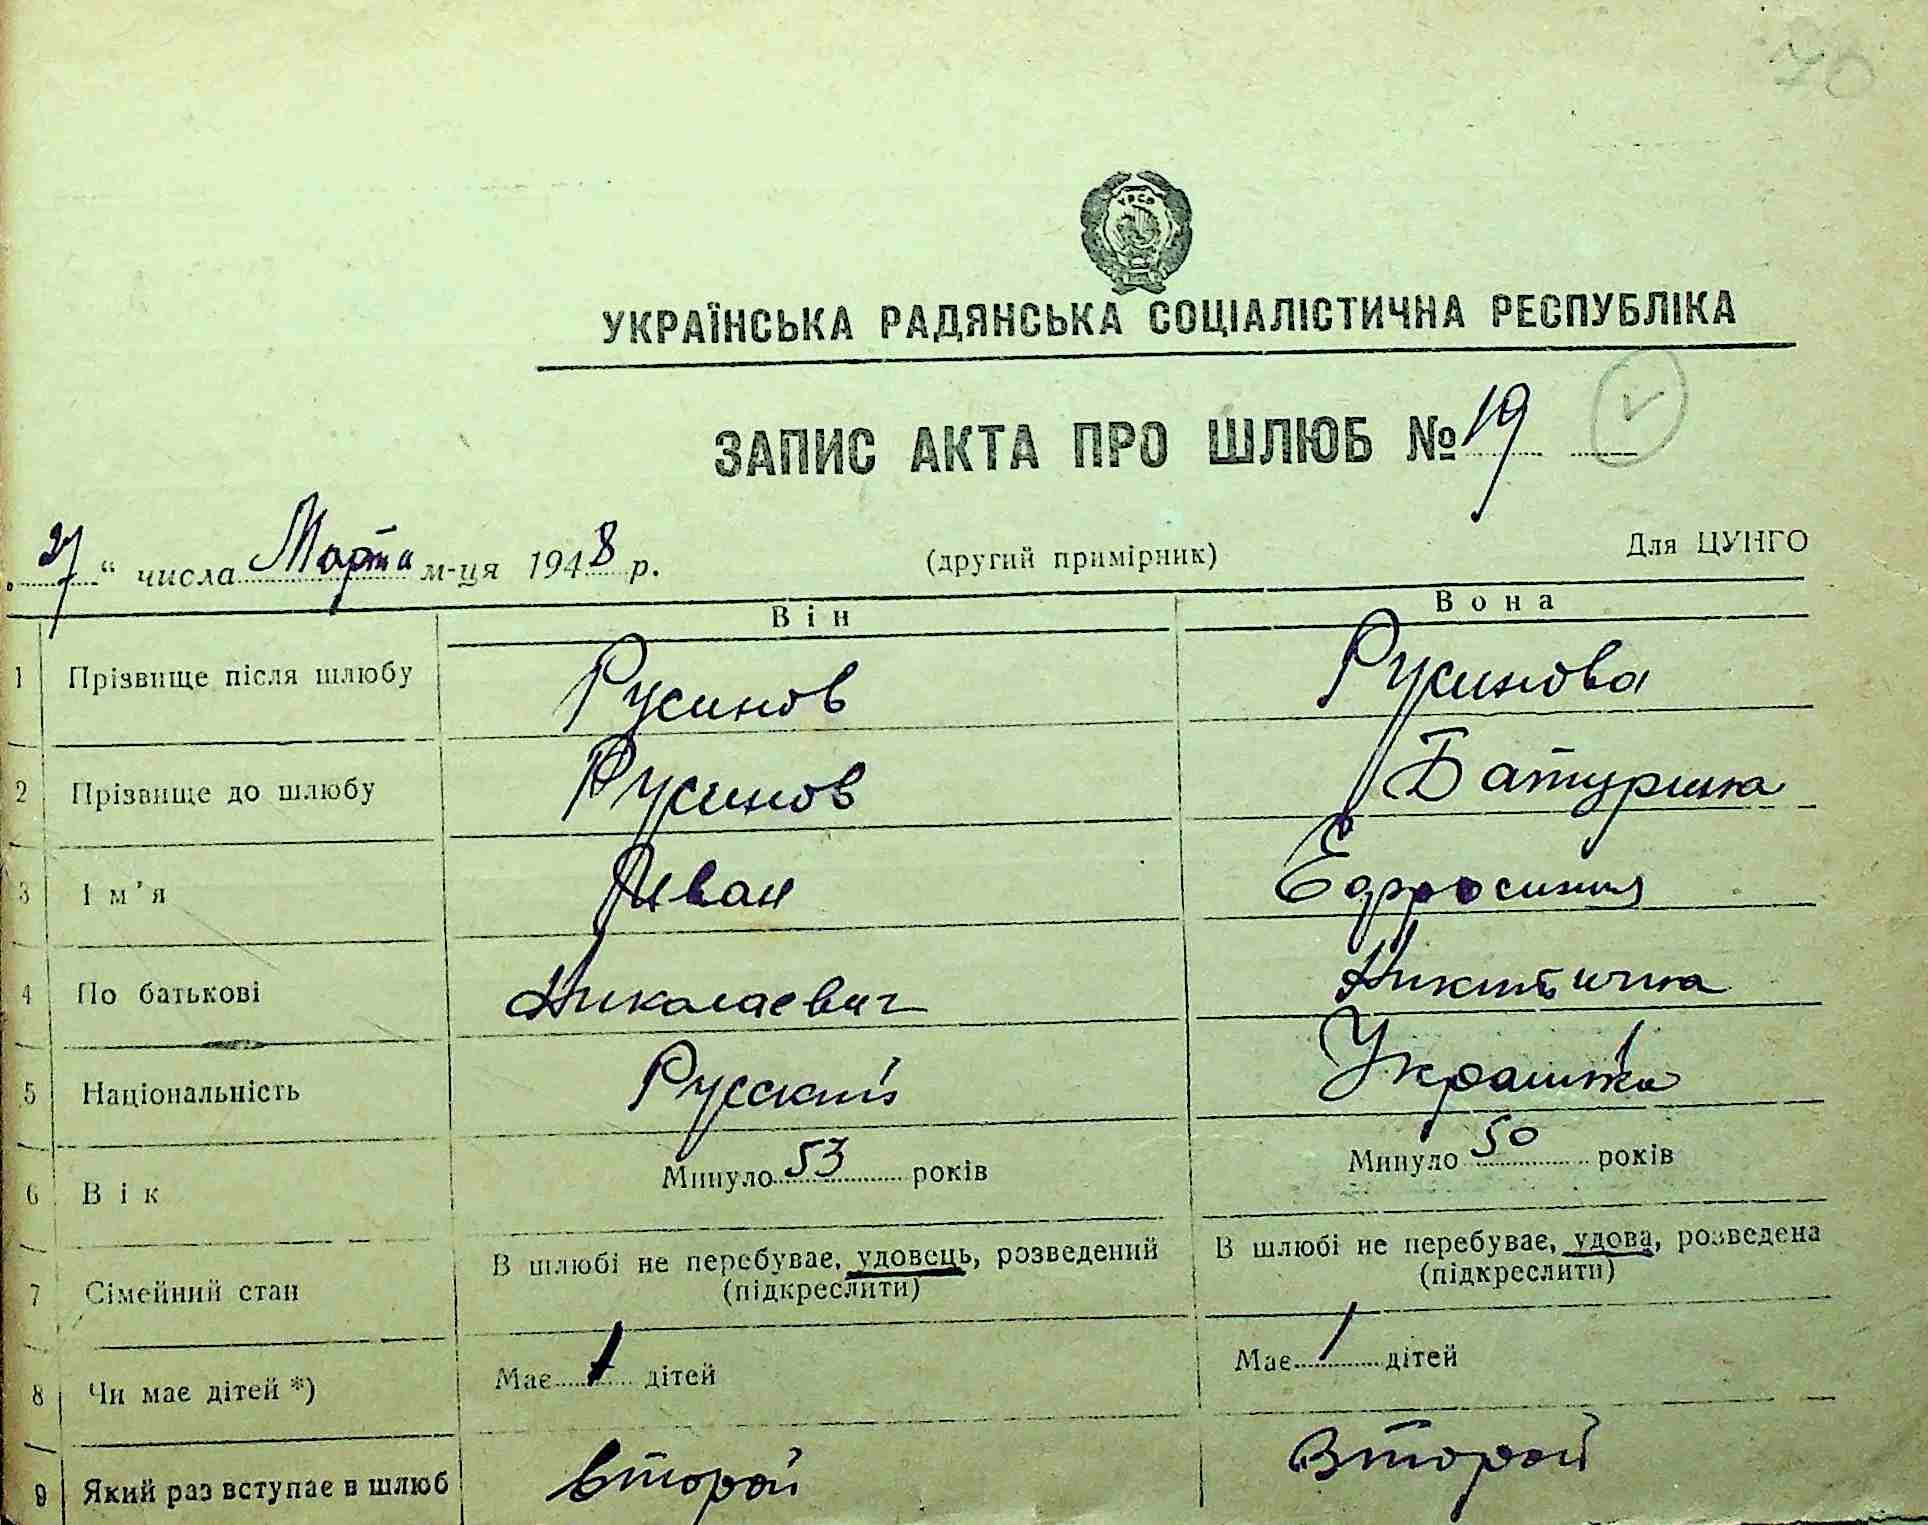 70
УРСР
УКРАЇНСЬКА РАДЯНСЬКА СОЦІАЛІСТИЧНА РЕСПУБЛІКА
ЗАПИС АКТА ПРО ШЛЮБ № 19
„27“ числа Марта м-ця 1948 р. (другий примірник) Для ЦУНГО
Він Вона
1 Прізвище після шлюбу Русинов Русинова
2 Прізвище до шлюбу Русинов Батурина
3 Ім'я Иван Ефросиния
4 По батькові Николаевич Никитична
5 Національність Русский Украинка
6 Вік Минуло 53 років Минуло 50 років
7 Сімейний стан В шлюбі не перебуває, удовець, розведений (підкреслити) В шлюбі не перебуває, удова, розведена (підкреслити)
8 Чи має дітей *) Має 1 дітей Має 1 дітей
9 Який раз вступає в шлюб второй второй